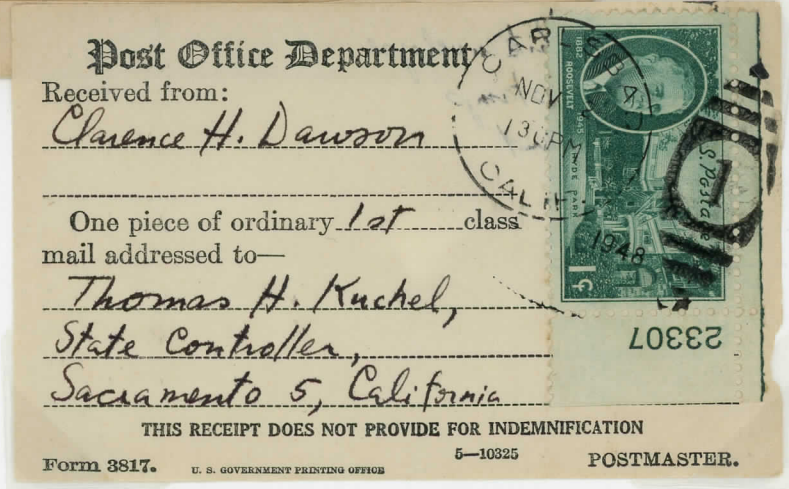 Post Office Department
Received from:
Clarence H. Dawson
One piece of ordinary 1st class
mail addressed to—
Thomas H. Kuchel,
State Controller,
Sacramento 5, California
THIS RECEIPT DOES NOT PROVIDE FOR INDEMNIFICATION
Form 3817. U. S. GOVERNMENT PRINTING OFFICE 5—10325 POSTMASTER.
CARLSBAD
NOV
130PM
CALIF
1948
1882 ROOSEVELT 1945
HYDE PARK
S. Postage
1¢
1
23307